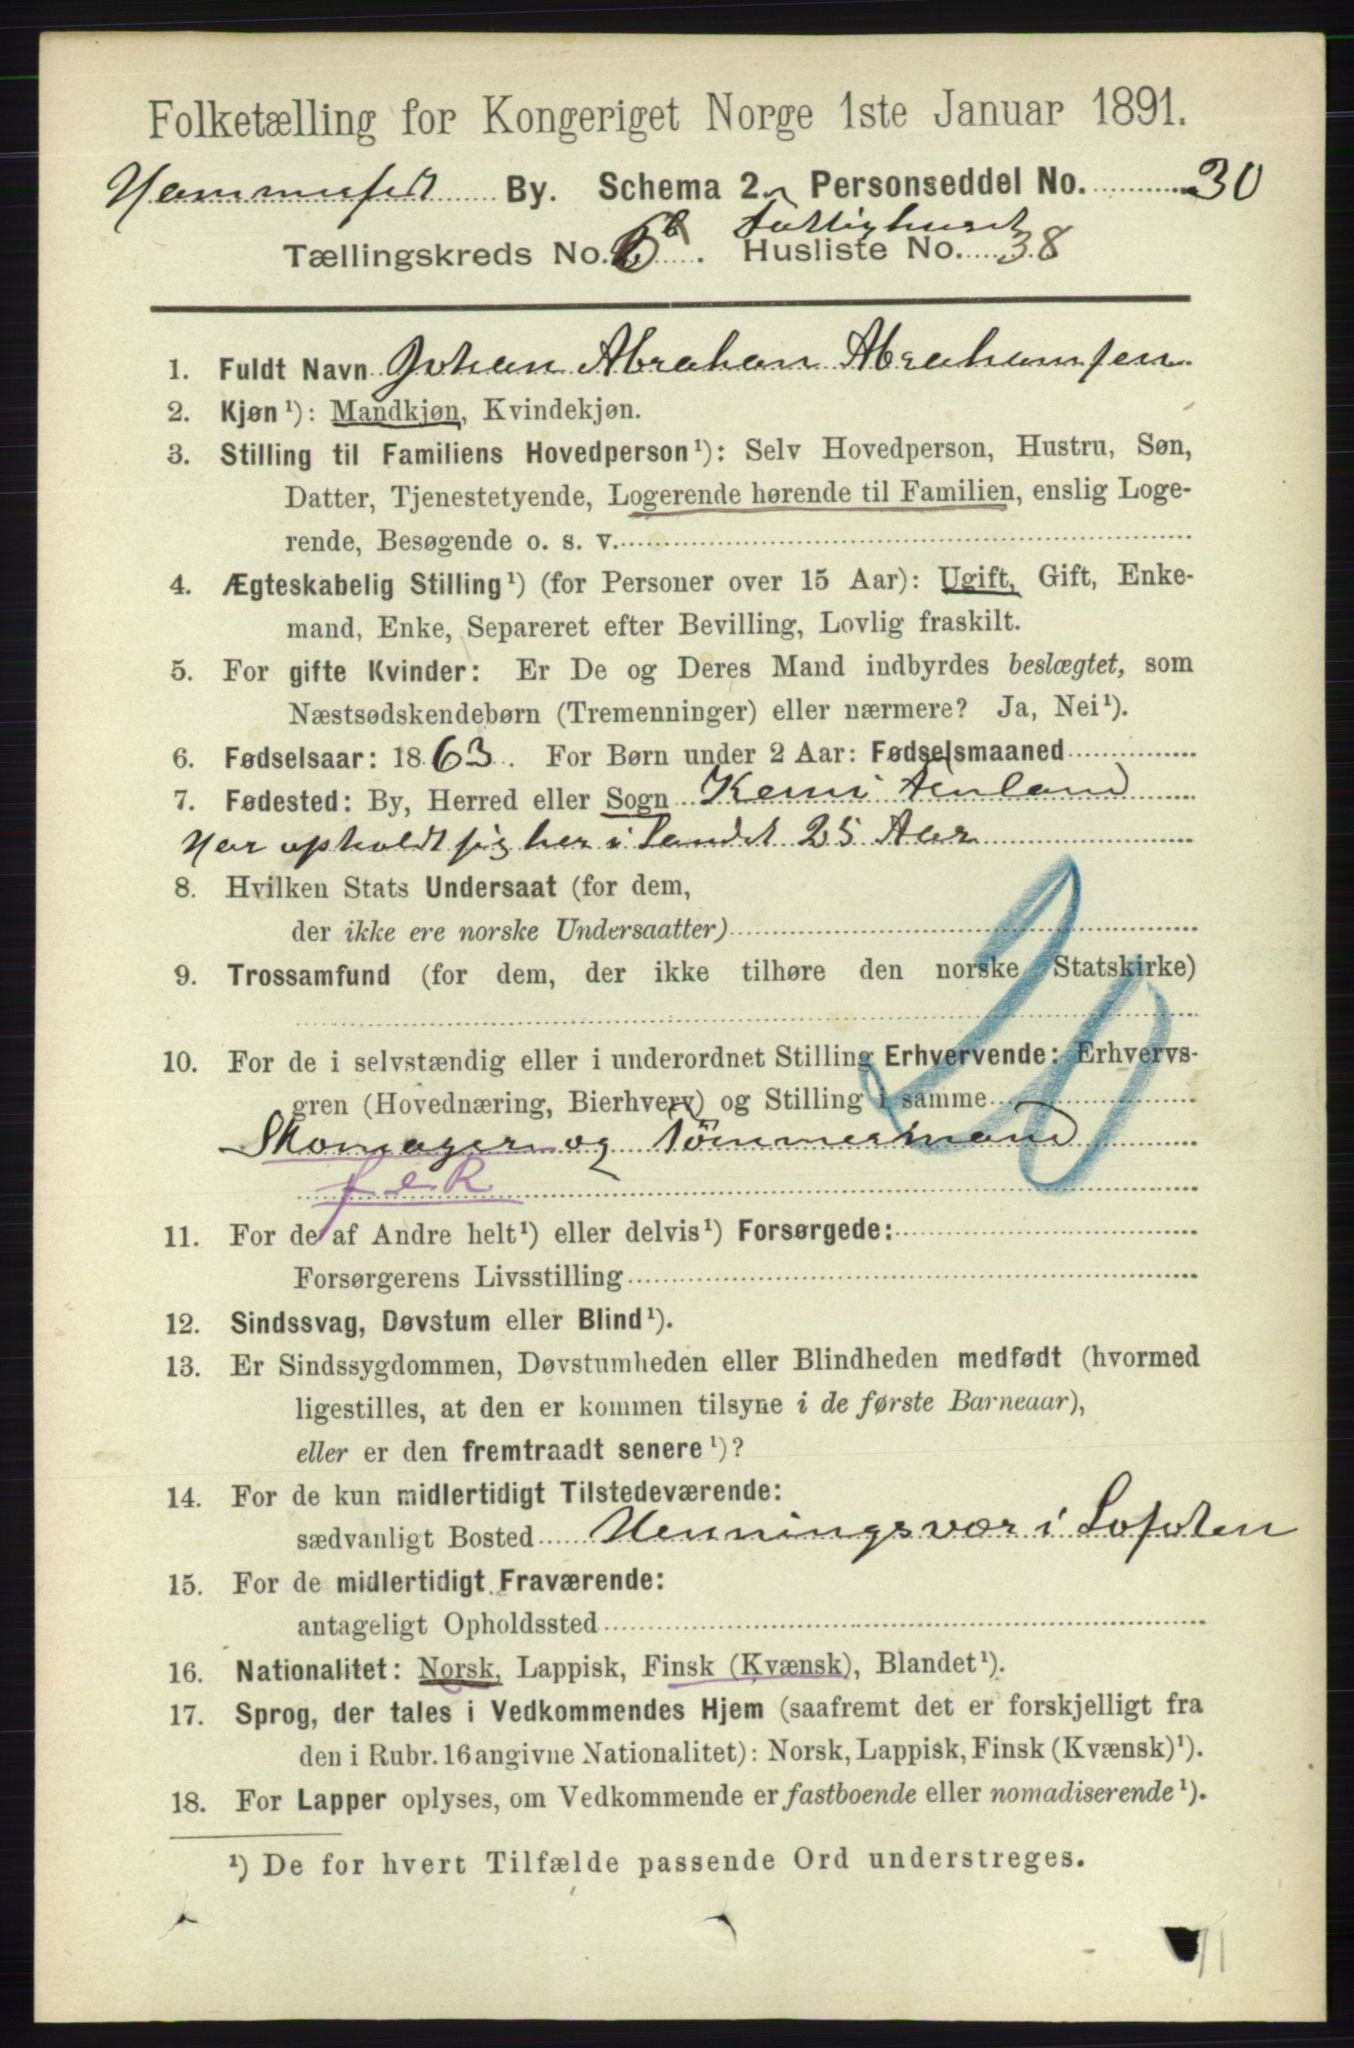 Folketælling for Kongeriget Norge 1ste Januar 1891.
Hammerfest By. Schema 2. Personseddel No. 30
Fattighuset
Tællingskreds No. 6b. Husliste No. 38
1. Fuldt Navn Johan Abraham Abrahamsen
2. Kjøn¹): Mandkjøn, Kvindekjøn.
3. Stilling til Familiens Hovedperson¹): Selv Hovedperson, Hustru, Søn,
Datter, Tjenestetyende, Logerende hørende til Familien, enslig Loge-
rende, Besøgende o. s. v.
4. Ægteskabelig Stilling¹) (for Personer over 15 Aar): Ugift, Gift, Enke-
mand, Enke, Separeret efter Bevilling, Lovlig fraskilt.
5. For gifte Kvinder: Er De og Deres Mand indbyrdes beslægtet, som
Næstsødskendebørn (Tremenninger) eller nærmere? Ja, Nei¹).
6. Fødselsaar: 1863. For Børn under 2 Aar: Fødselsmaaned
7. Fødested: By, Herred eller Sogn Kemi
Har opholdt sig her i Landet 25 Aar
8. Hvilken Stats Undersaat (for dem,
der ikke ere norske Undersaatter)
9. Trossamfund (for dem, der ikke tilhøre den norske Statskirke)
20
10. For de i selvstændig eller i underordnet Stilling Erhvervende: Erhvervs-
gren (Hovednæring, Bierhverv) og Stilling i samme
Skomager og Tømmermand
11. For de af Andre helt¹) eller delvis¹) Forsørgede:
Forsørgerens Livsstilling
12. Sindssvag, Døvstum eller Blind¹).
13. Er Sindssygdommen, Døvstumheden eller Blindheden medfødt (hvormed
ligestilles, at den er kommen tilsyne i de første Barneaar),
eller er den fremtraadt senere¹)?
14. For de kun midlertidigt Tilstedeværende:
sædvanligt Bosted Henningsvær i Lofoten
15. For de midlertidigt Fraværende:
antageligt Opholdssted
16. Nationalitet: Norsk, Lappisk, Finsk (Kvænsk), Blandet¹).
17. Sprog, der tales i Vedkommendes Hjem (saafremt det er forskjelligt fra
den i Rubr. 16 angivne Nationalitet): Norsk, Lappisk, Finsk (Kvænsk)¹).
18. For Lapper oplyses, om Vedkommende er fastboende eller nomadiserende¹).
¹) De for hvert Tilfælde passende Ord understreges.